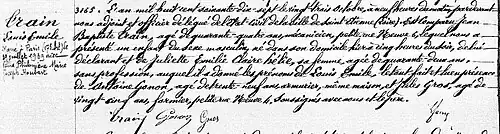 Train
Louis Emile
Marié à Paris
3165. L'an mil huit cent soixante dix-sept et vingt trois octobre, à neuf heures du matin, par devant
nous adjoint et officier délégué de l'état civil de la ville de Saint Etienne (Loire). Est comparu Jean
Baptiste Train, âgé de quarante-quatre ans, mécanicien, petite rue Neuve 4, lequel nous a
présenté un enfant du sexe masculin, né dans son domicile hier à cinq heures du soir, de lui
déclarant et de Juliette Emilie Claire, sa femme, âgée de quarante-deux ans,
sans profession, auquel il a donné les prénoms de Louis Emile. Le tout fait en présence
de Antoine Ganon, âgé de trente-neuf ans, armurier, même maison et Jules Gros, âgé de
vingt-cinq ans, formier, petite rue Neuve 4, soussignés avec nous et le père.
Train Ganon Gros